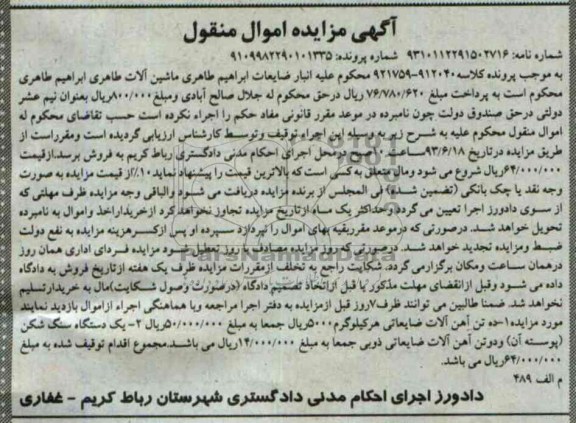 آگهی مزایده اموال منقول
شماره نامه: ۹۳۱۰۱۱۲۲۹۱۵۰۲۷۱۶ شماره پرونده: ۹۱۰۹۹۸۲۲۹۰۱۰۱۳۳۵
به موجب پرونده کلاسه ۹۱۲۰۴۰-۹۲۱۷۵۹ محکوم علیه انبار ضایعات ابراهیم طاهری ماشین آلات طاهری ابراهیم طاهری
محکوم است به پرداخت مبلغ ۷۶/۷۸۰/۶۲۰ ریال درحق محکوم له جلال صالح آبادی ومبلغ ۸۰۰/۰۰۰ریال بعنوان نیم عشر
دولتی درحق صندوق دولت چون نامبرده در موعد مقرر قانونی مفاد حکم را اجراء نکرده است حسب تقاضای محکوم له
اموال منقول محکوم علیه به شرح زیر به وسیله این اجراء توقیف وتوسط کارشناس ارزیابی گردیده است ومقرراست از
طریق مزایده درتاریخ ۹۳/۶/۱۸ساعت صبح درمحل اجرای احکام مدنی دادگستری رباط کریم به فروش برسد.ازقیمت
۶۴/۰۰۰/۰۰۰ریال شروع می شود ومال متعلق به کسی است که بالاترین قیمت را پیشنهاد نماید.۱۰٪از قیمت مزایده به صورت
وجه نقد یا چک بانکی (تضمین شده) فی المجلس از برنده مزایده دریافت می شود والباقی وجه مزایده ظرف مهلتی که
از سوی دادورز اجرا تعیین می گردد وحداکثر یک ماه ازتاریخ مزایده تجاوز نخواهد کرد ازخریداراخذ واموال به نامبرده
تحویل خواهد شد. درصورتی که درموعد مقرربقیه بهای اموال را نپردازد سپرده او پس ازکسرهزینه مزایده به نفع دولت
ضبط ومزایده تجدید خواهد شد. درصورتی که روز مزایده مصادف با روز تعطیل شود مزایده فردای اداری همان روز
درهمان ساعت ومکان برگزارمی گردد. شکایت راجع به تخلف ازمقررات مزایده ظرف یک هفته ازتاریخ فروش به دادگاه
داده می شود وقبل ازانقضای مهلت مذکور یا قبل ازاتخاذ تصمیم دادگاه (درصورت وصول شکایت)مال به خریدارتسلیم
نخواهد شد. ضمنا طالبین می توانند ظرف ۷روز قبل ازمزایده به دفتر اجرا مراجعه وبا هماهنگی اجراء ازاموال بازدید نمایند
مورد مزایده ۱-ده تن آهن آلات ضایعاتی هرکیلوگرم ۵۰۰۰ریال جمعا به مبلغ ۵۰/۰۰۰/۰۰۰ریال ۲- یک دستگاه سنگ شکن
(پوسته آن) ودوتن آهن آلات ضایعاتی ذوبی جمعا به مبلغ ۱۴/۰۰۰/۰۰۰ریال می باشد.مجموع اقدام توقیف شده به مبلغ
۶۴/۰۰۰/۰۰۰ریال می باشد.
م الف ۴۸۹
دادورز اجرای احکام مدنی دادگستری شهرستان رباط کریم - غفاری
ParsNamadData